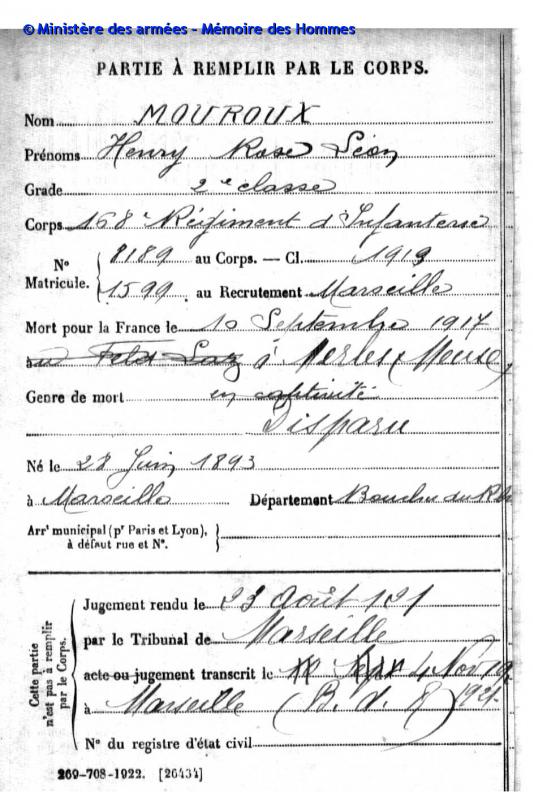 © Ministère des armées - Mémoire des Hommes
PARTIE À REMPLIR PAR LE CORPS.
Nom MOUROUX
Prénoms Henry Rose Léon
Grade 2e classe
Corps 168e Régiment d'Infanterie
No Matricule. { 8189 au Corps. — Cl. 1913
1599 au Recrutement Marseille
Mort pour la France le 10 Septembre 1917
au Feld Laz à Meuse
Genre de mort en captivité
Disparu
Né le 28 Juin 1893
à Marseille Département Bouches du Rh
Arrt municipal (pr Paris et Lyon), à défaut rue et No. }
Cette partie n'est pas à remplir par le Corps.
Jugement rendu le 23 Août 121
par le Tribunal de Marseille
acte ou jugement transcrit le 4 Nov
à Marseille (B. d. ) 1921
No du registre d'état civil
269-708-1922. [26434]